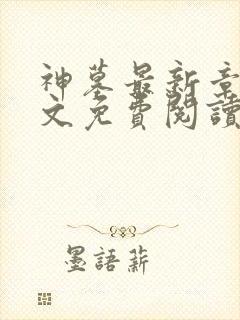 神墓最新章
文免費閱讀
墨語薪